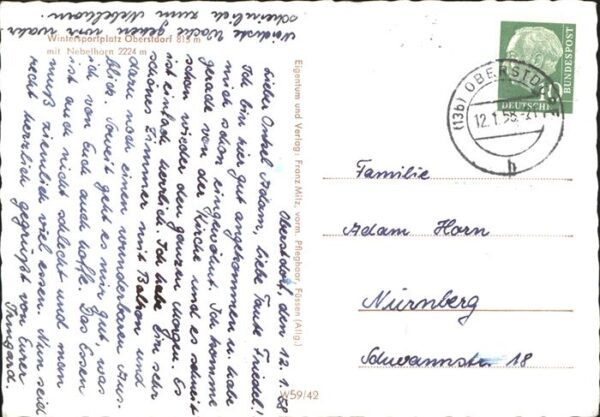 Wintersportplatz Oberstdorf 815 m
mit Nebelhorn 2224 m
Oberstdorf, den 12.1.58
Lieber Onkel Adam, liebe Tante Friedel!
Ich bin hier gut angekommen u. habe
mich schon eingewöhnt. Ich komme
gerade von der Kirche und es schneit
schon wieder den ganzen Morgen. Es
ist einfach herrlich. Ich habe ein sehr
schönes Zimmer mit Balkon und
dann noch einen wunderbaren Aus-
blick. Soweit geht es mir gut, was
ich von Euch auch hoffe. Das Essen
ist auch nicht schlecht und man
muß ziemlich viel essen. Nun seid
recht herzlich gegrüßt von Eurer
Irmgard.
Nächste Woche gehen wir wahr
scheinlich zum Nebelhorn.
Eigentum und Verlag: Franz Milz, vorm. Pfleghaar, Füssen (Allg.)
W59/42
10
DEUTSCHE
BUNDESPOST
(13b) OBERSTDORF
12.1.58.-21
b
Familie
Adam Horn
Nürnberg
Schwannstr. 18